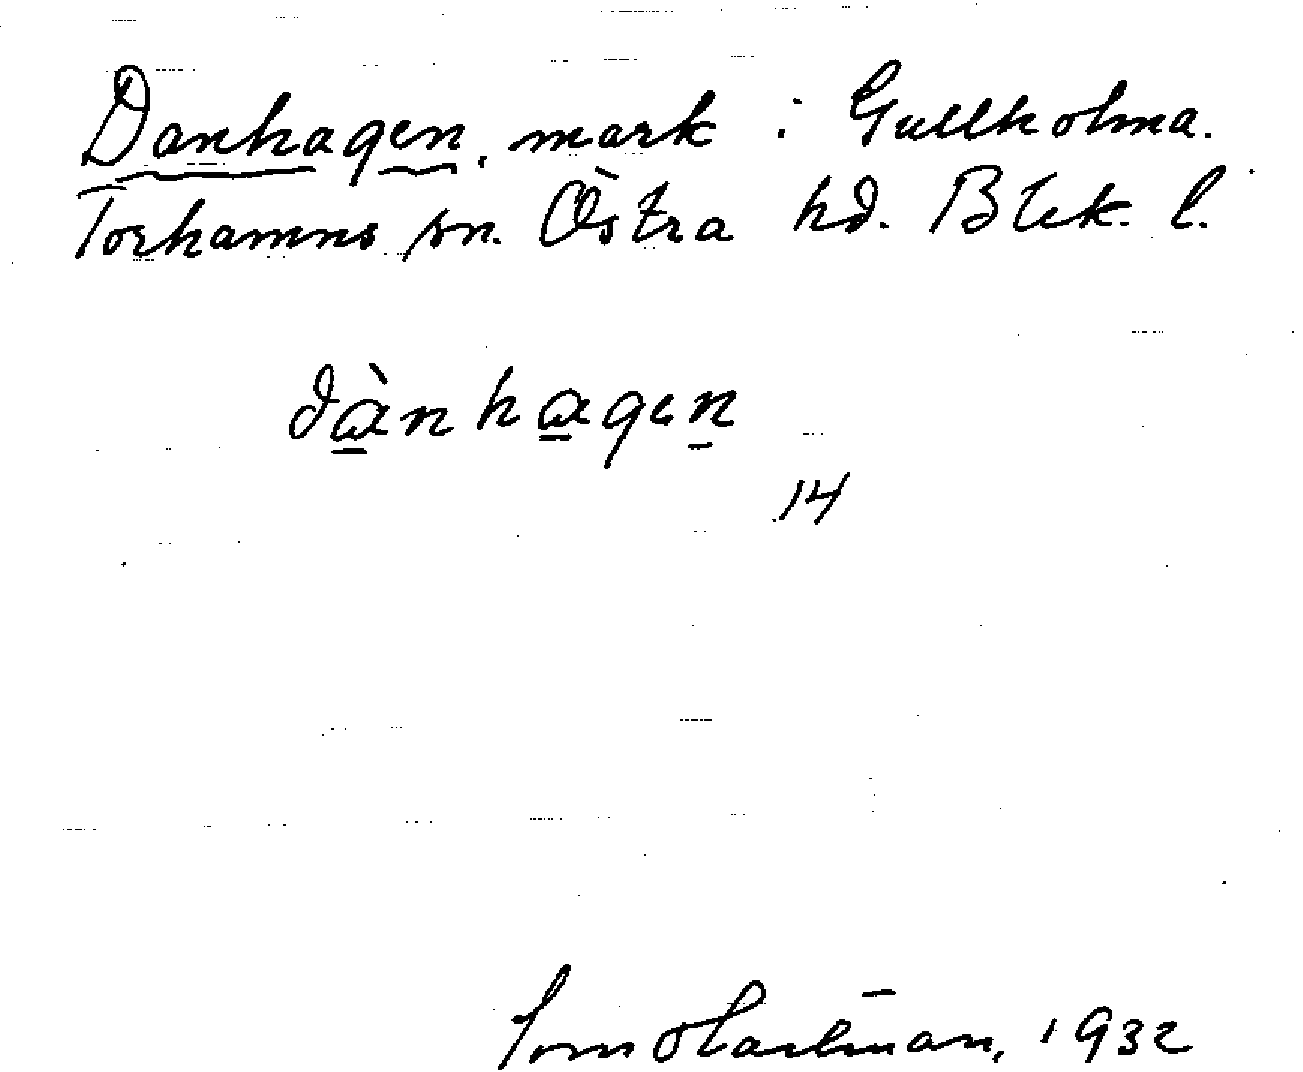 Danhagen, mark i Gullholma.
Torhamns sn. Östra hd. Blek. l.
dànhagen
14
1932